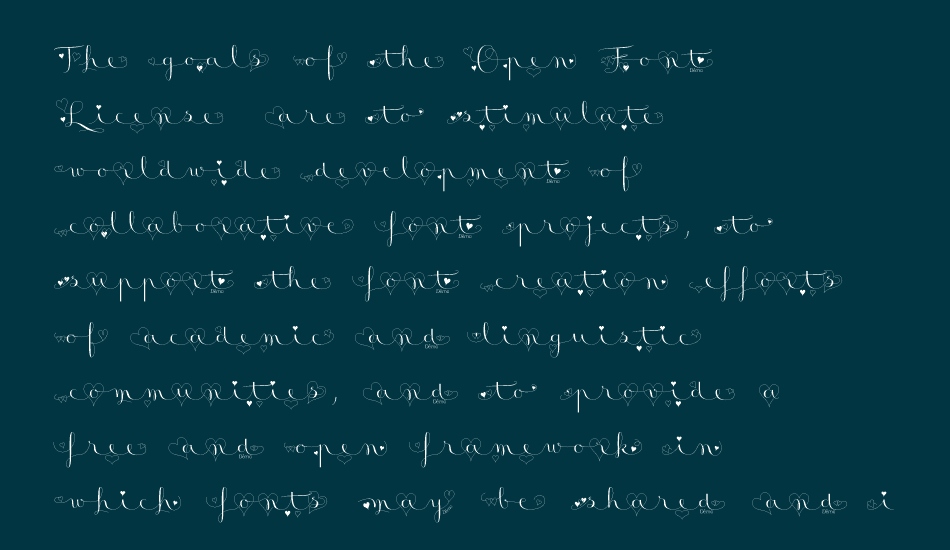 The goals of the Open Font
License are to stimulate
worldwide development of
collaborative font projects, to
support the font creation efforts
of academic and linguistic
communities, and to provide a
free and open framework in
which fonts may be shared and i